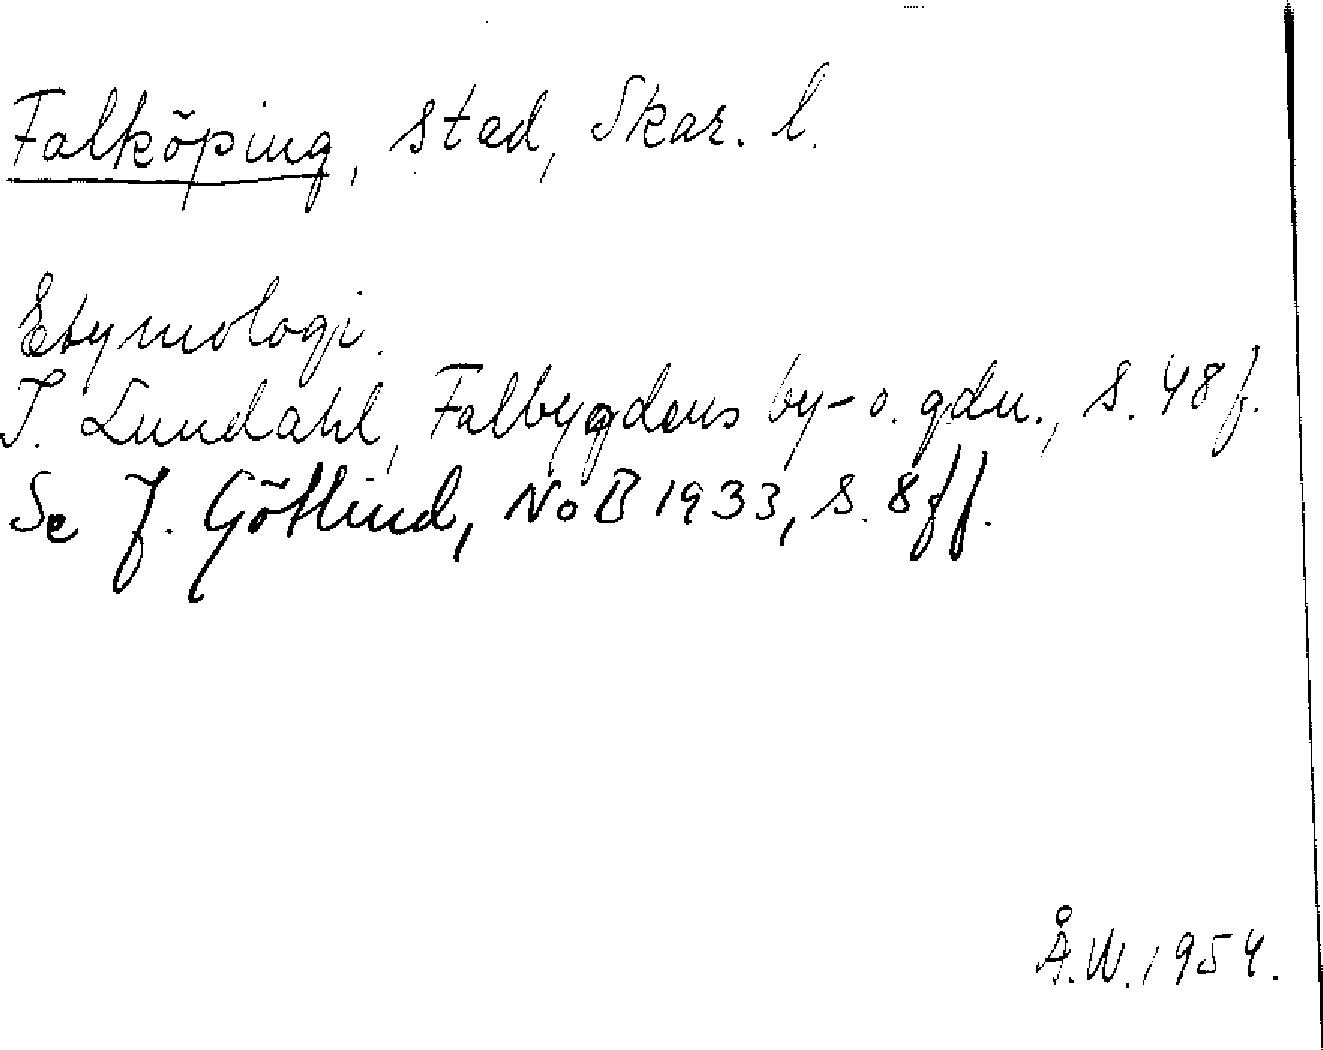 Falköping, stad, Skar. l.
Etymologi.
I. Lundahl, Falbygdens by- o. gdn., s. 48 f.
Se J. Götlind, NoB 1933, s. 8 ff.
Å.W. 1954.